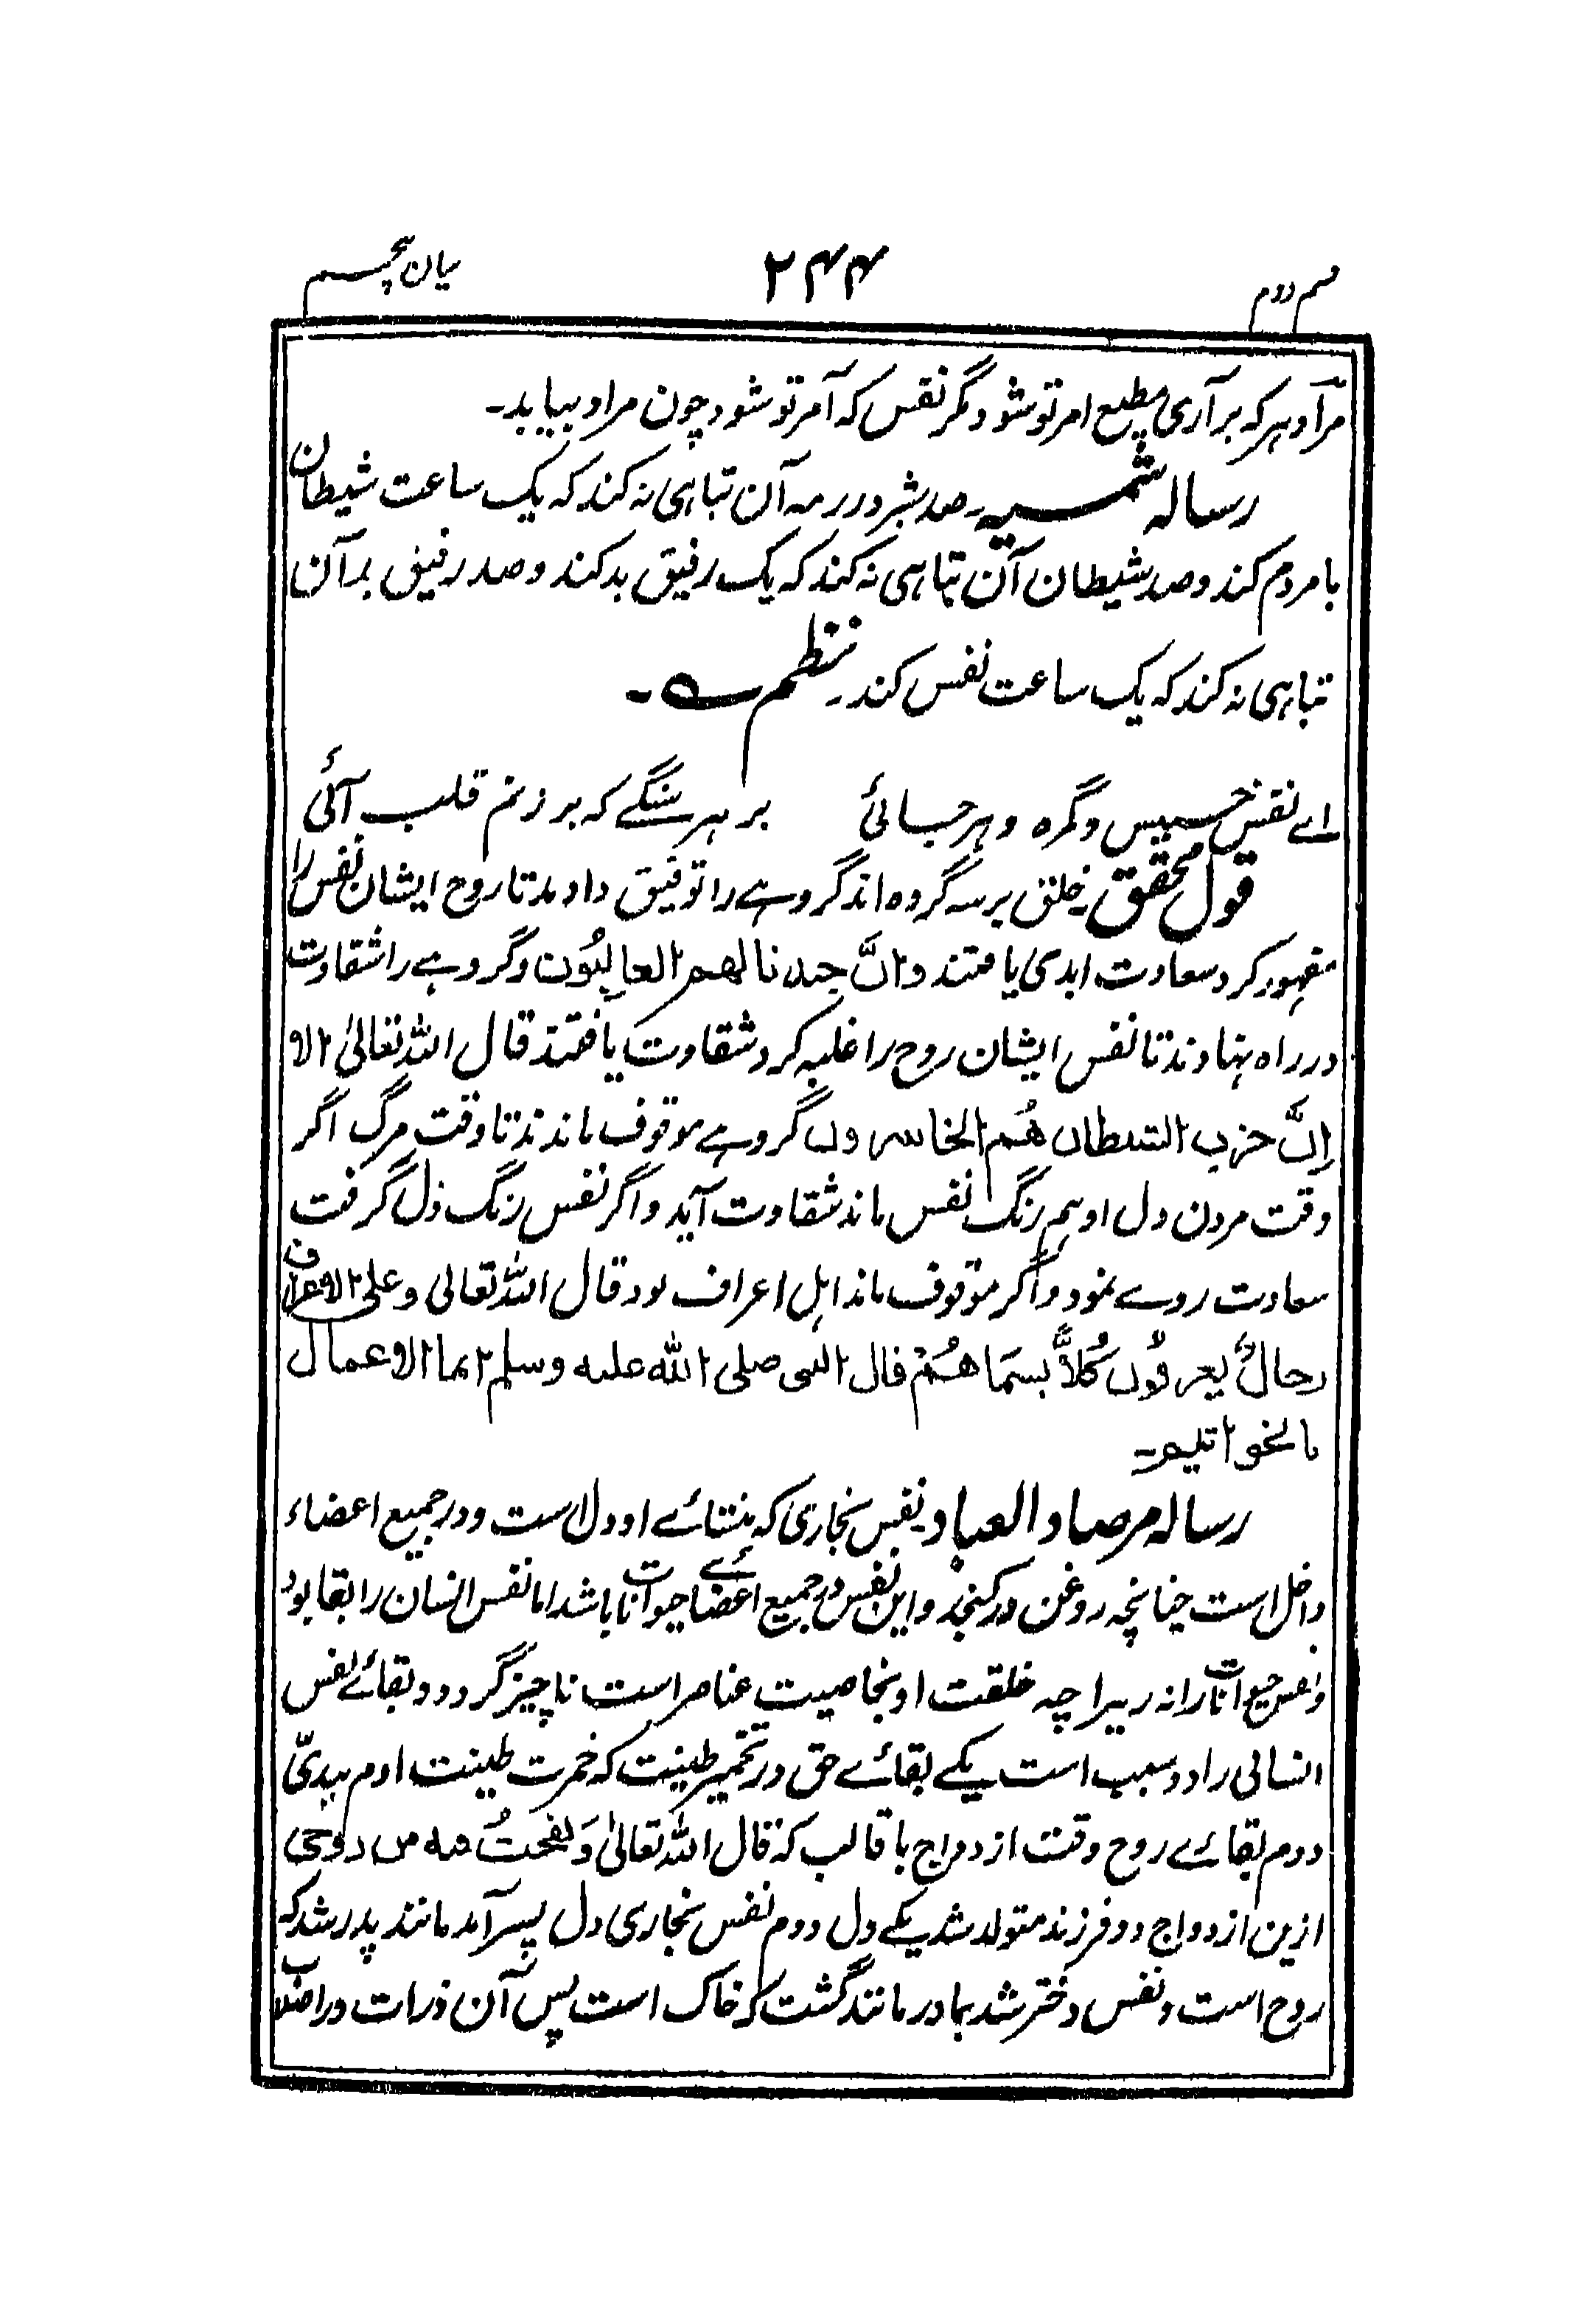 قسم دوم
۲۴۴
بیان پنجم
مرادِ هر که برآری مطیع امر تو شود مگر نفس که آمر تو شود چون مراد بیابد۔
رسالہ شمسیہ۔ صد شیر در رمہ آن تباہی نہ کند کہ یک ساعت شیطان
با مردم کند و صد شیطان آن تباہی نہ کند کہ یک رفیق بد کند و صد رفیق بد آن
تباہی نہ کند کہ یک ساعت نفس کند۔ نظم ؎۔
اے نفس خسیس و گمرہ و ہر جائی بر ہر سنگے کہ بر زنم قلب آئی
قول محقق۔ خلق بر سہ گروہ اند گروہے را توفیق دادند تا روح ایشان نفس را
مقہور کرد سعادت ابدی یافتند وَاِنَّ جندنا لھم الغالِبُون و گروہے را شقاوت
در راہ نہادند تا نفس ایشان روح را غلبہ کرد شقاوت یافتند قال اللہ تعالیٰ الا
اِنَّ حزب الشیطان ھُم الخاسرون گروہے موقوف ماندند تا وقت مرگ اگر
وقت مردن دل او ہم رنگ نفس ماند شقاوت آید و اگر نفس رنگ دل گرفت
سعادت روے نمود و اگر موقوف ماند اہل اعراف بود قال اللہ تعالی و علی الاعراف
رجالٌ یعرفُون کُلاًّ بسیمَاھُمْ قال النبی صلی اللہ علیہ وسلم انما الاعمال
بالخواتیم۔
رسالہ مرصاد العباد۔ نفس بخاری کہ منشائے او دل است و در جمیع اعضاء
داخل است چنانچہ روغن در کنجد و این نفس در جمیع اعضائے حیوانات باشد اما نفس انسان را بقا بود
و نفس حیوانات را نہ زیرا چہ خلقت او بخاصیت عناصر است ناچیز گردد و بقائے نفس
انسانی را دو سبب است یکے بقائے حق در تخمیر طینت کہ خمرت طینت ادم بیدیّ
دوم بقائے روح وقت ازدواج با قالب کہ قال اللہ تعالیٰ وَنفختُ فیہ من روحی
ازین ازدواج دو فرزند متولد شد یکے دل دوم نفس بخاری دل پسر آمد مانند پدر شد کہ
روح است و نفس دختر شد بمادر مانند گشت کہ خاک است پس آن ذرات در اصلاب